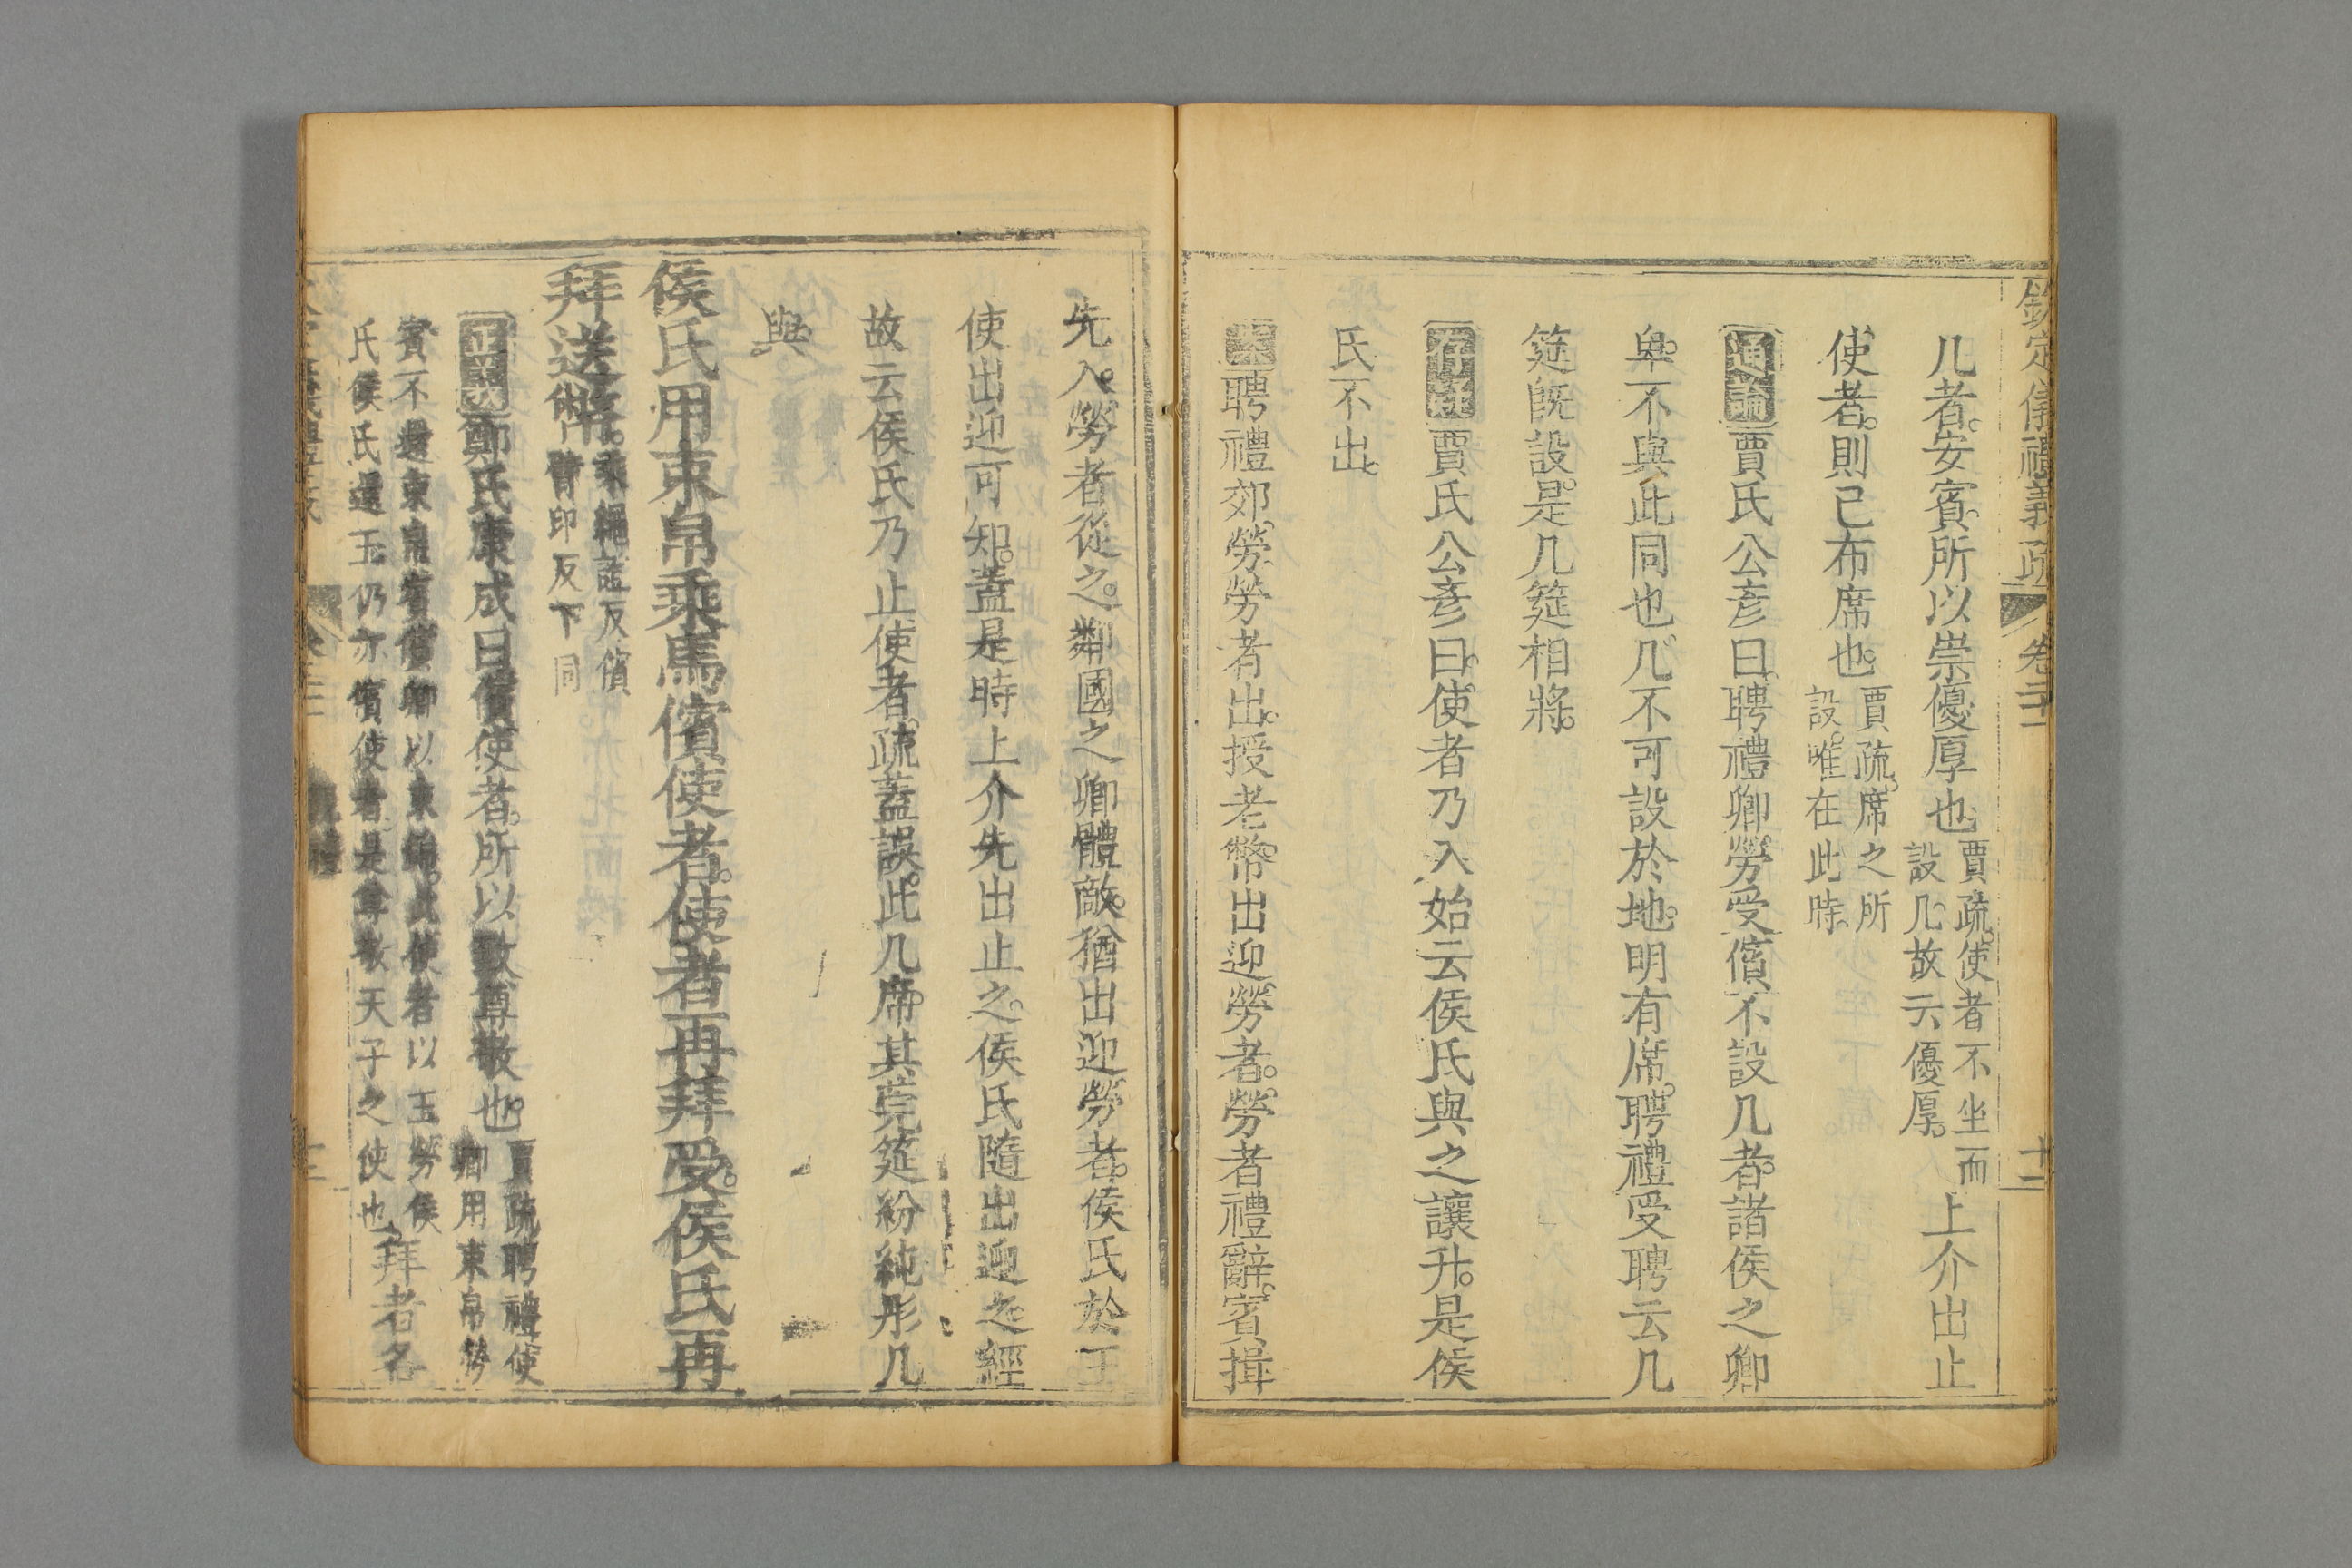 欽定儀禮義疏 卷二十一 十二
几者。安賓。所以崇優厚也。賈疏。使者不坐而設几。故云優厚。上介出止
使者。則已布席也。賈疏。席之所設。唯在此時。
通論 賈氏公彥曰。聘禮卿勞。受儐不設几者。諸侯之卿
卑。不與此同也。几不可設於地。明有席。聘禮受聘云几
筵旣設。是几筵相將。
存疑 賈氏公彥曰。使者乃入。始云侯氏與之讓升。是侯
氏不出。
案 聘禮郊勞。勞者出。授老幣。出迎勞者。勞者禮辭。賓揖
先入。勞者從之。鄰國之卿體敵。猶出迎勞者。侯氏於王
使出迎可知。蓋是時上介先出止之。侯氏隨出迎之。經
故云侯氏乃止使者。疏蓋誤。此几席。其莞筵紛純彤几
與。
侯氏用束帛乘馬儐使者。使者再拜受。侯氏再
拜送幣。乘繩證反儐擯印反下同
正義 鄭氏康成曰。儐使者。所以致尊敬也。賈疏聘禮使卿用束帛勞
賓不還束帛賓儐卿以束錦。此使者以玉勞侯氏侯氏還玉仍亦儐使者。是尊敬天子之使也。拜者各